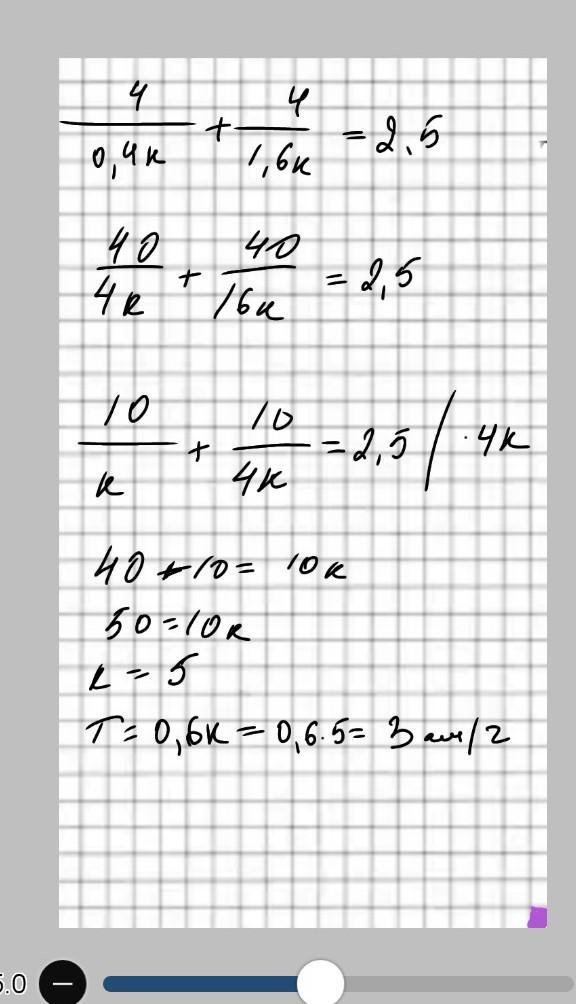 4/0,4к + 4/1,6к = 2,5
40/4к + 40/16к = 2,5
10/к + 10/4к = 2,5 / ·4к
40 + 10 = 10к
50 = 10к
к = 5
T = 0,6к = 0,6·5 = 3 км/г
5.0